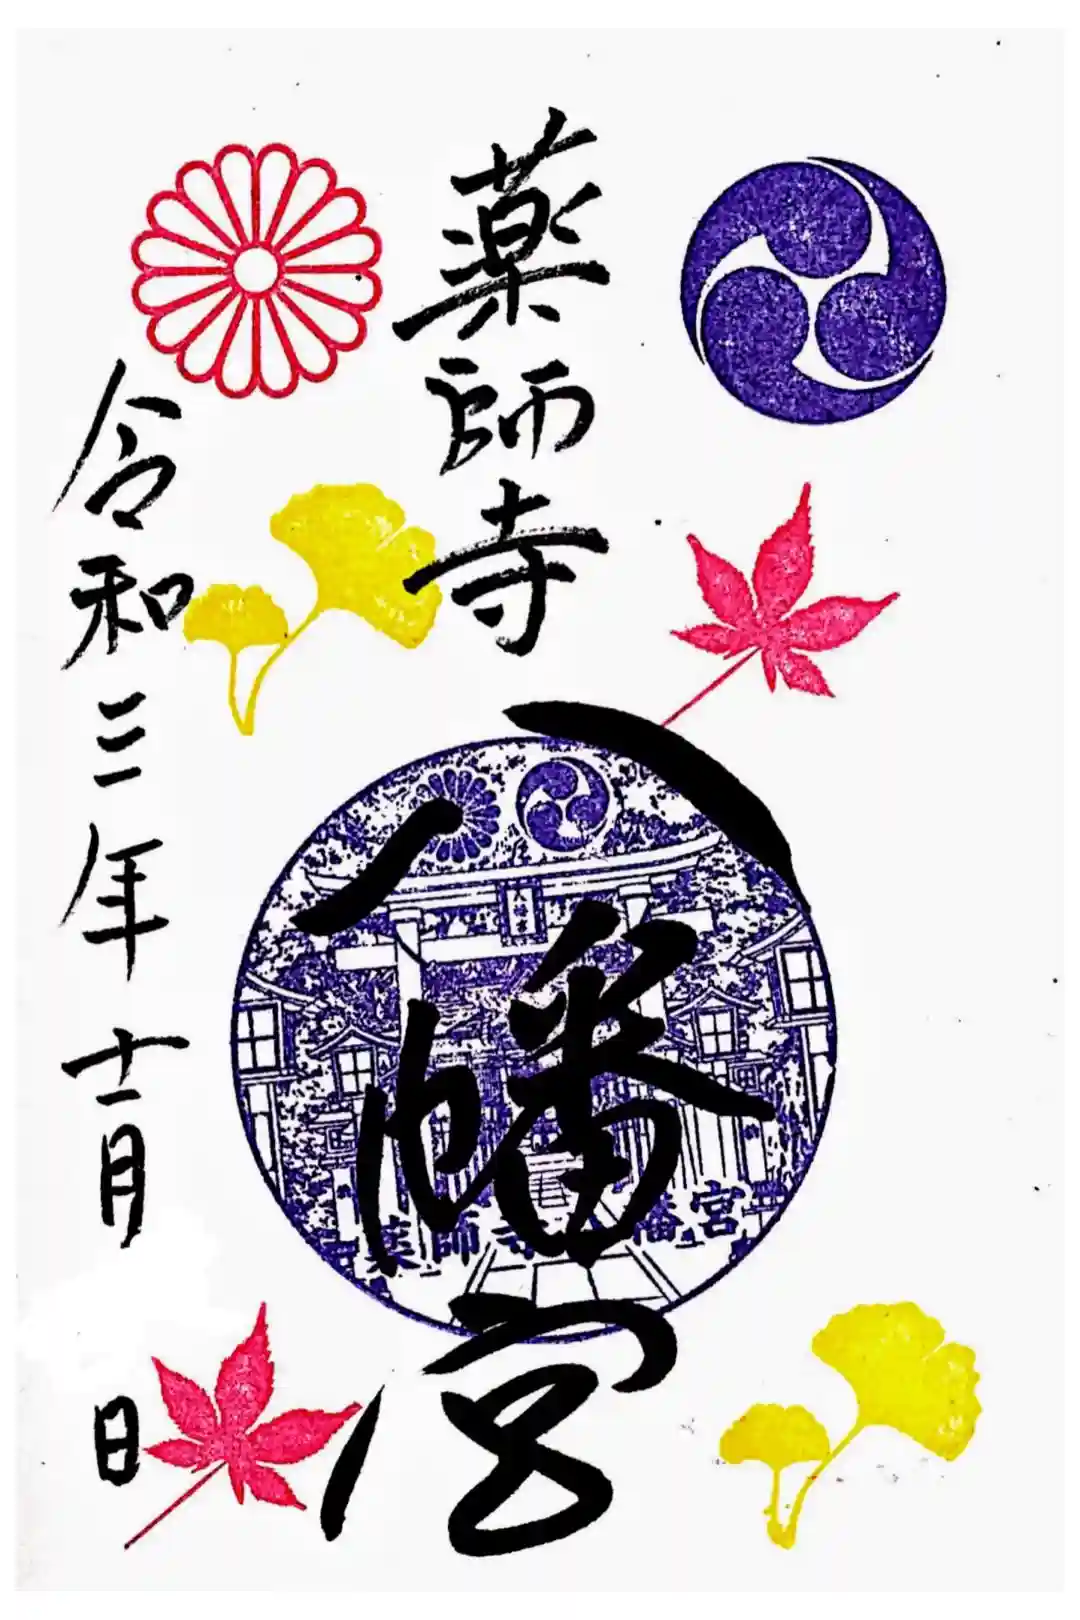 薬師寺
八幡宮
令和三年十一月 日
八幡宮
薬師寺八幡宮